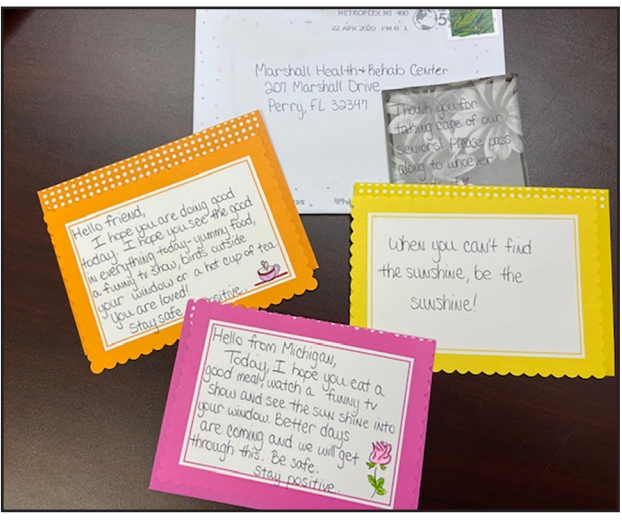 METROPLEX MI 480
22 APR 2020 PM 8 L
Marshall Health+Rehab Center
207 Marshall Drive
Perry, FL 32347
Thank you for
taking care of our
seniors! Please pass
along to whoever
Hello friend,
I hope you are doing good
today. I hope you see the good
in everything today-yummy food,
a funny tv show, birds outside
your window or a hot cup of tea.
You are loved!
Stay safe positive.
When you can't find
the sunshine, be the
sunshine!
Hello from Michigan,
Today, I hope you eat a
good meal, watch a funny tv
show and see the sun shine into
your window. Better days
are coming and we will get
through this. Be safe.
Stay positive.